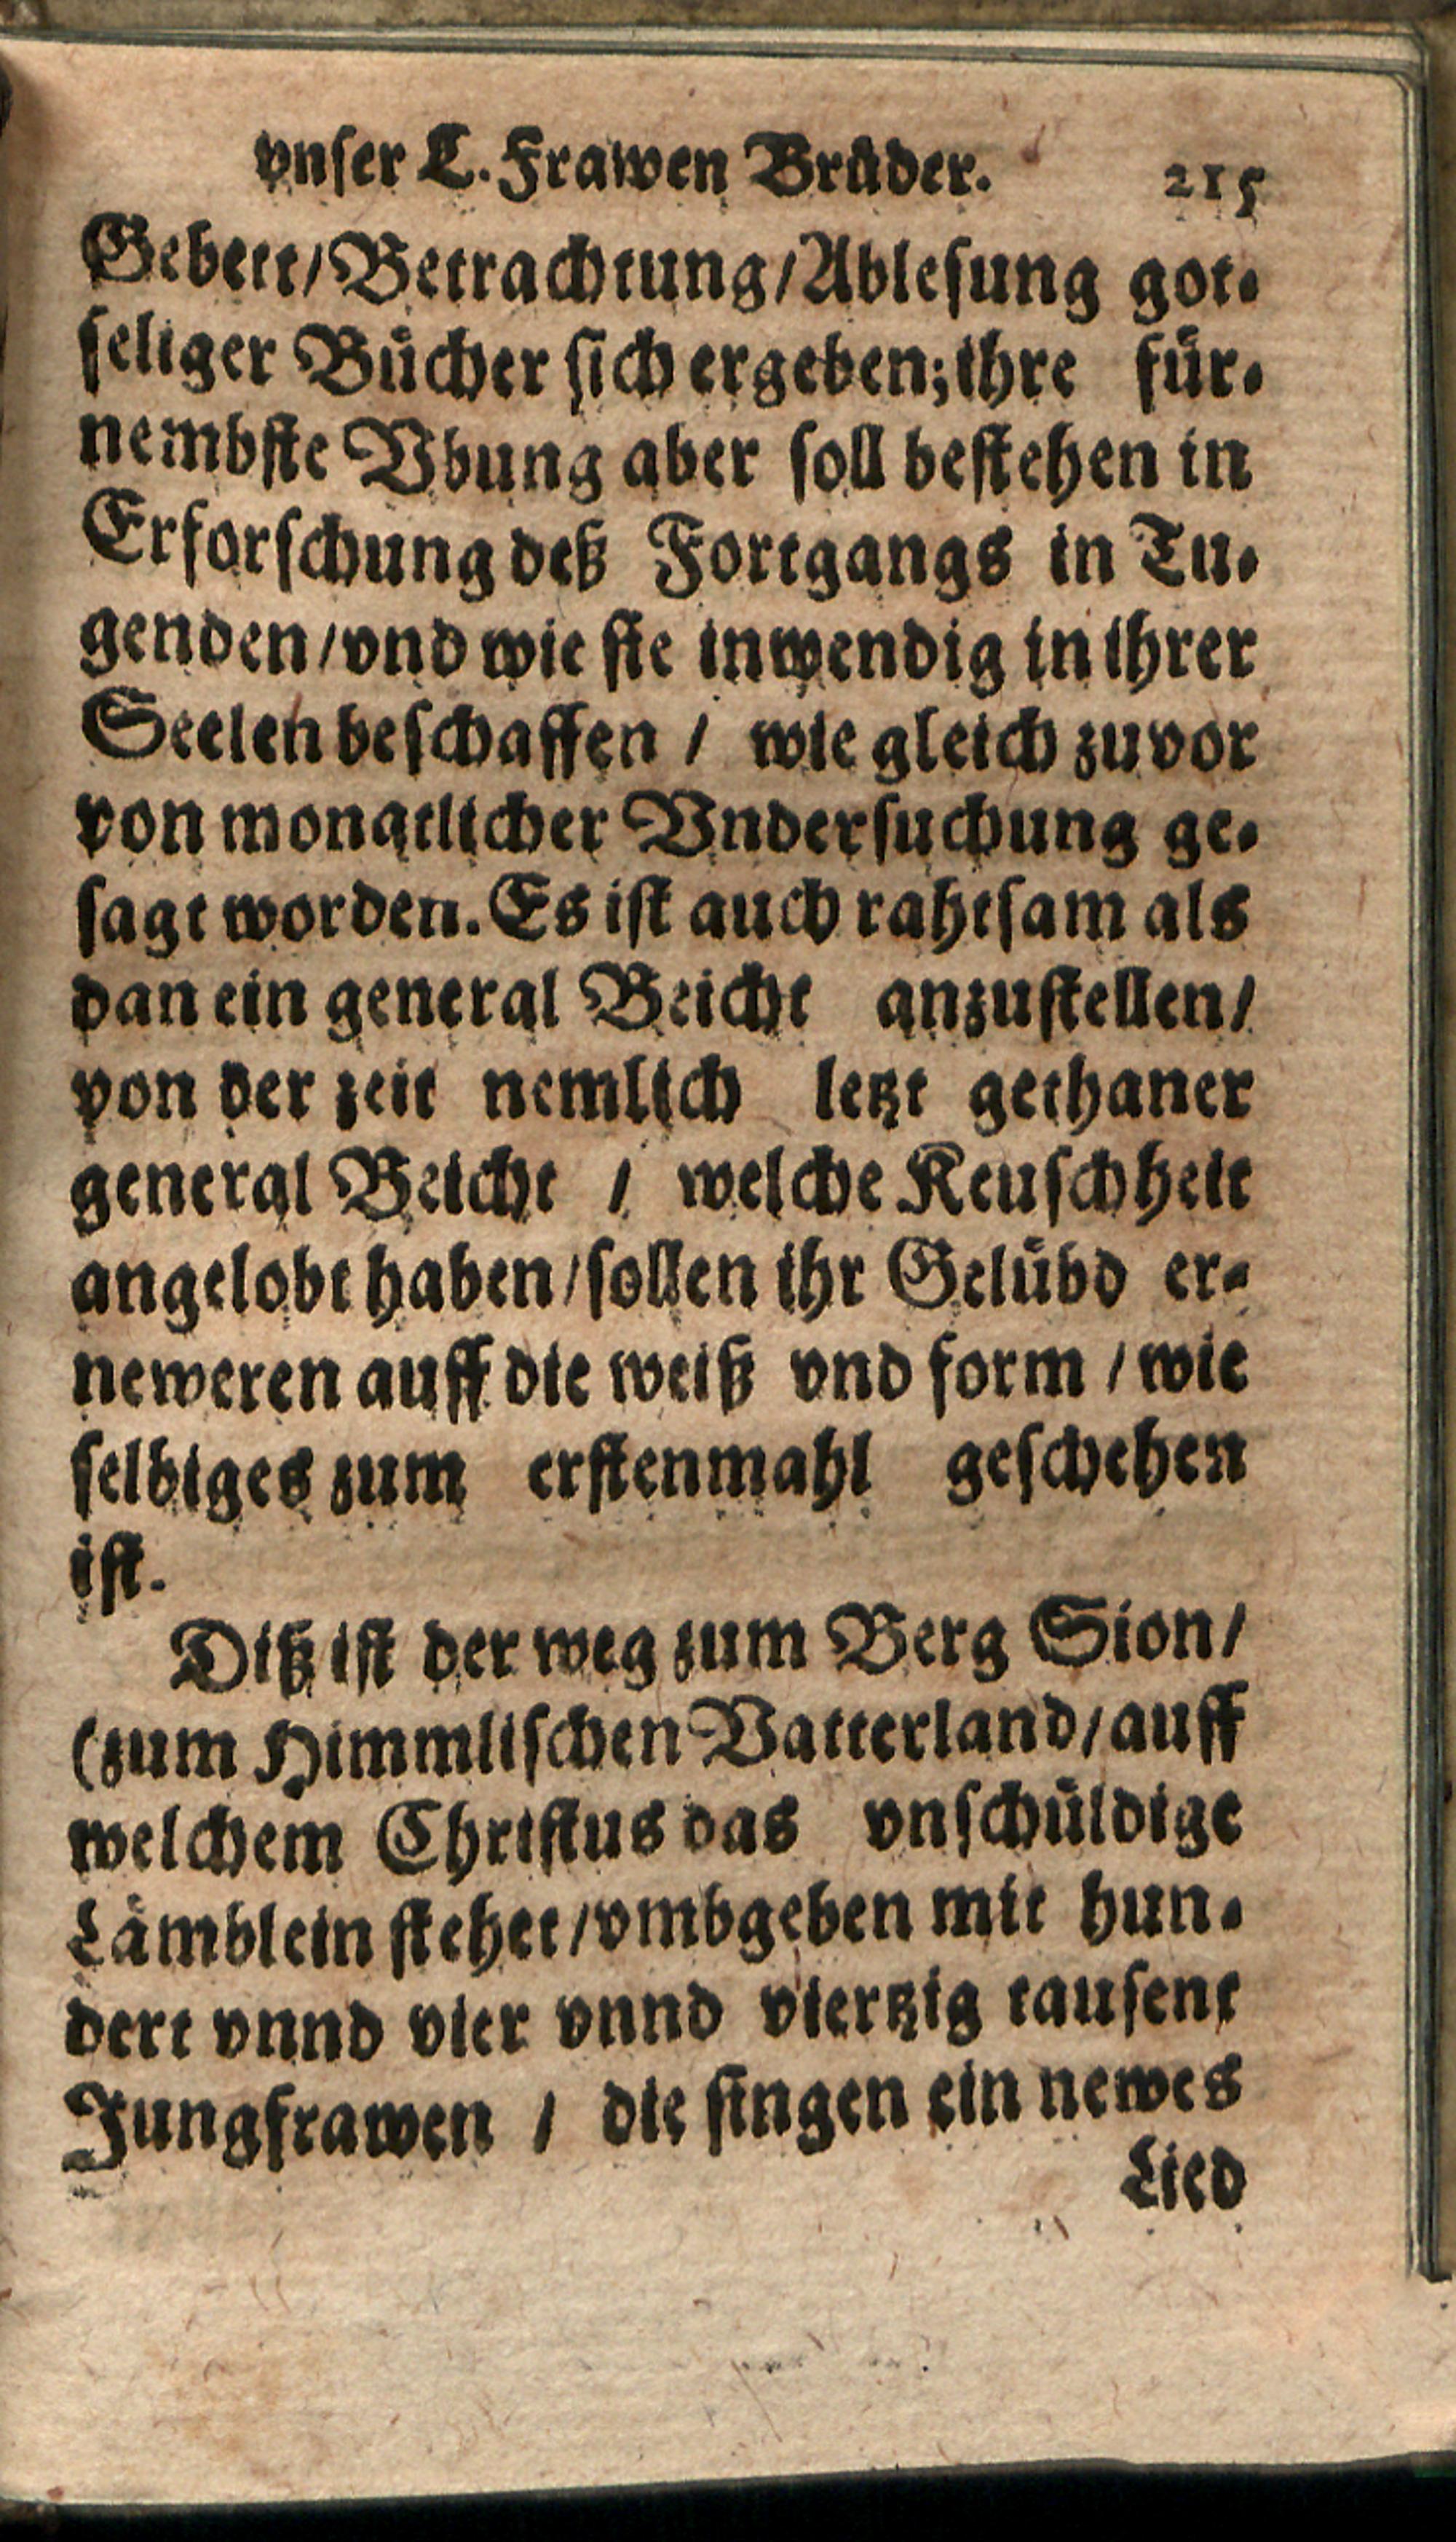 vnser L. Frawen Bråder. 215
Gebett/Betrachtung/Ablesung got-
seliger Bücher sich ergeben; ihre für-
nembste Vbung aber soll bestehen in
Erforschung deß Fortgangs in Tu-
genden/vnd wie sie inwendig in ihrer
Seelen beschaffen / wie gleich zuvor
von monatlicher Vndersuchung ge-
sagt worden. Es ist auch rahtsam als
dan ein general Beicht anzustellen/
von der zeit nemlich letzt gethaner
general Beicht / welche Keuschheit
angelobt haben/sollen ihr Gelübd er-
neweren auff die weiß vnd form / wie
selbiges zum erstenmahl geschehen
ist.
Diß ist der weg zum Berg Sion/
(zum Himmlischen Vatterland/auff
welchem Christus das vnschüldige
Lämblein stehet/vmbgeben mit hun-
dert vnnd vier vnnd viertzig tausent
Jungfrawen / die singen ein newes
Lied